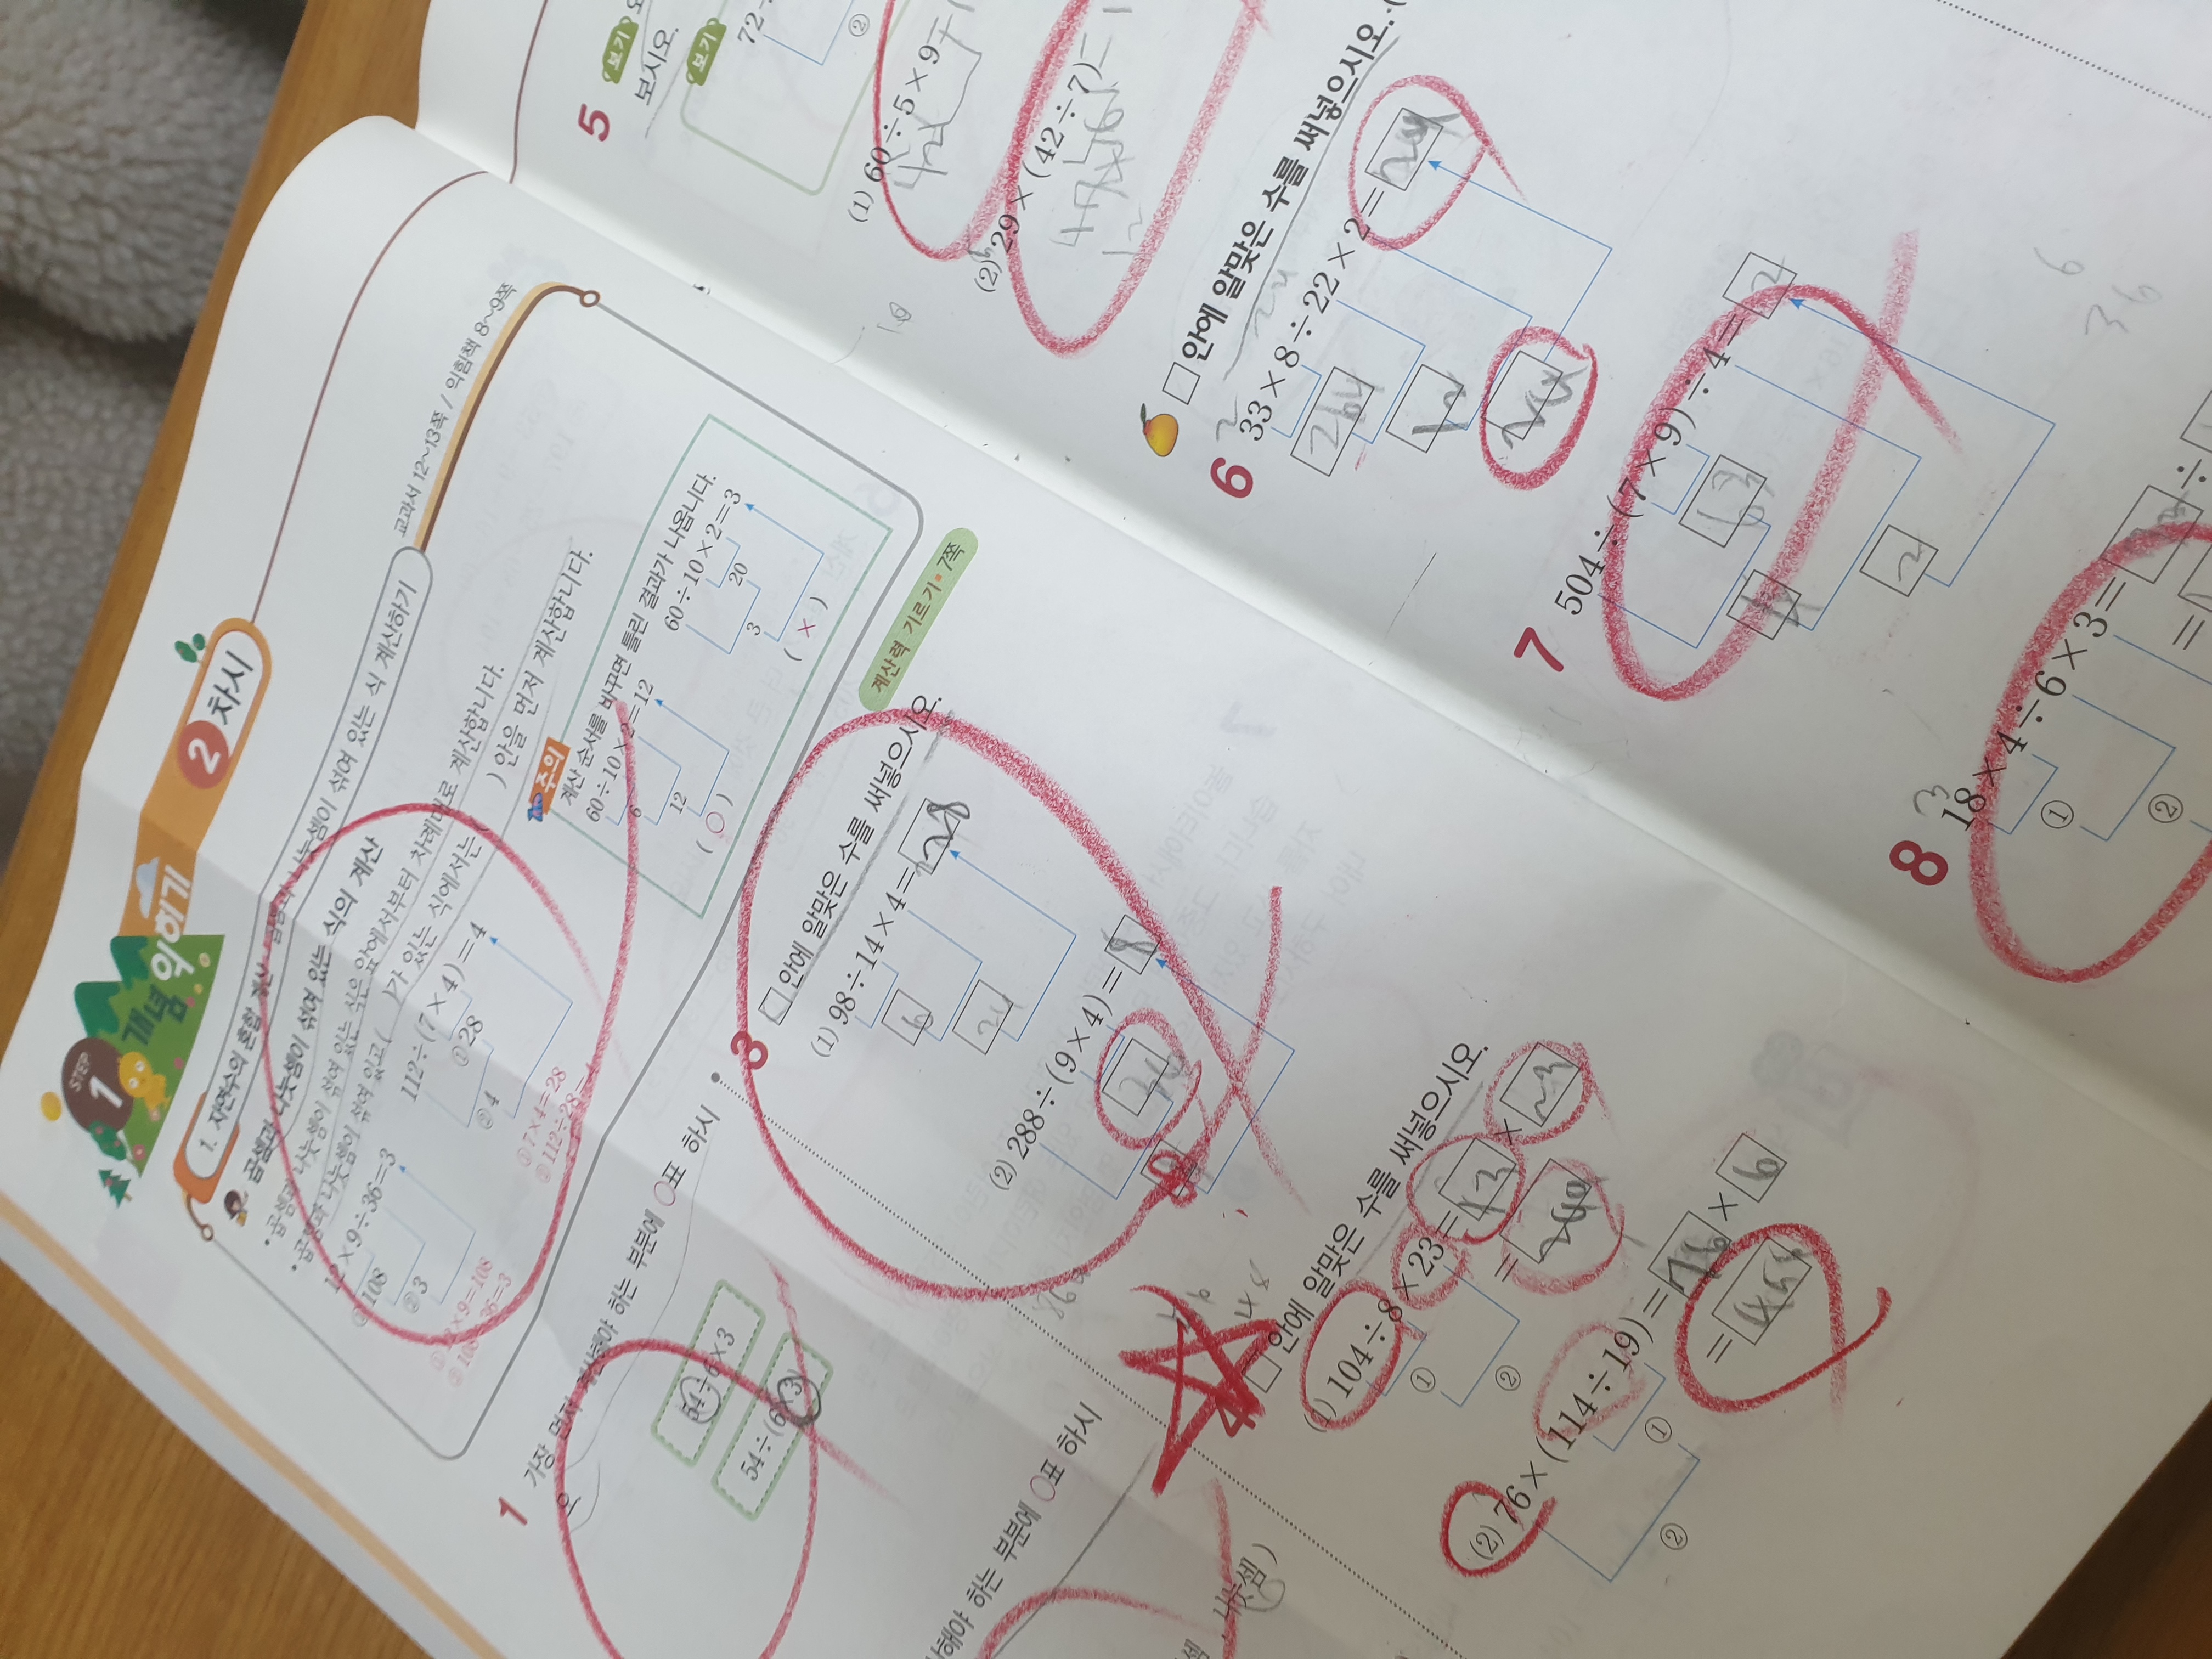 STEP 1 개념 익히기
2 차시
1. 자연수의 혼합 계산
곱셈과 나눗셈이 섞여 있는 식 계산하기
교과서 12~13쪽 / 익힘책 8~9쪽
곱셈과 나눗셈이 섞여 있는 식의 계산
• 곱셈과 나눗셈이 섞여 있는 식은 앞에서부터 차례대로 계산합니다.
• 곱셈과 나눗셈이 섞여 있고 ( )가 있는 식에서는 ( ) 안을 먼저 계산합니다.
12×9÷36=3
① 108
② 3
① 12×9=108
② 108÷36=3
112÷(7×4)=4
① 28
② 4
① 7×4=28
② 112÷28=4
주의
계산 순서를 바꾸면 틀린 결과가 나옵니다.
60÷10×2=12
6
12
( ○ )
60÷10×2=3
20
3
( × )
계산력 기르기 • 7쪽
1 가장 먼저 계산해야 하는 부분에 ○표 하시
오.
54÷6×3
54÷(6×3)
해야 하는 부분에 ○표 하시
나눗셈 )
3 □ 안에 알맞은 수를 써넣으시오.
(1) 98÷14×4=28
6
24
(2) 288÷(9×4)=8
4 □ 안에 알맞은 수를 써넣으시오.
(1) 104÷8×23=13×23
①
②
(2) 76×(114÷19)=76×6
①
②
5 보기
보시오.
보기
72÷
②
(1) 60÷5×9=
(2) 29×(42÷7)=
□ 안에 알맞은 수를 써넣으시오.
6 33×8÷22×2=24
264
12
24
7 504÷(7×9)÷4=2
63
2
8 18×4÷6×3=
①
②
36